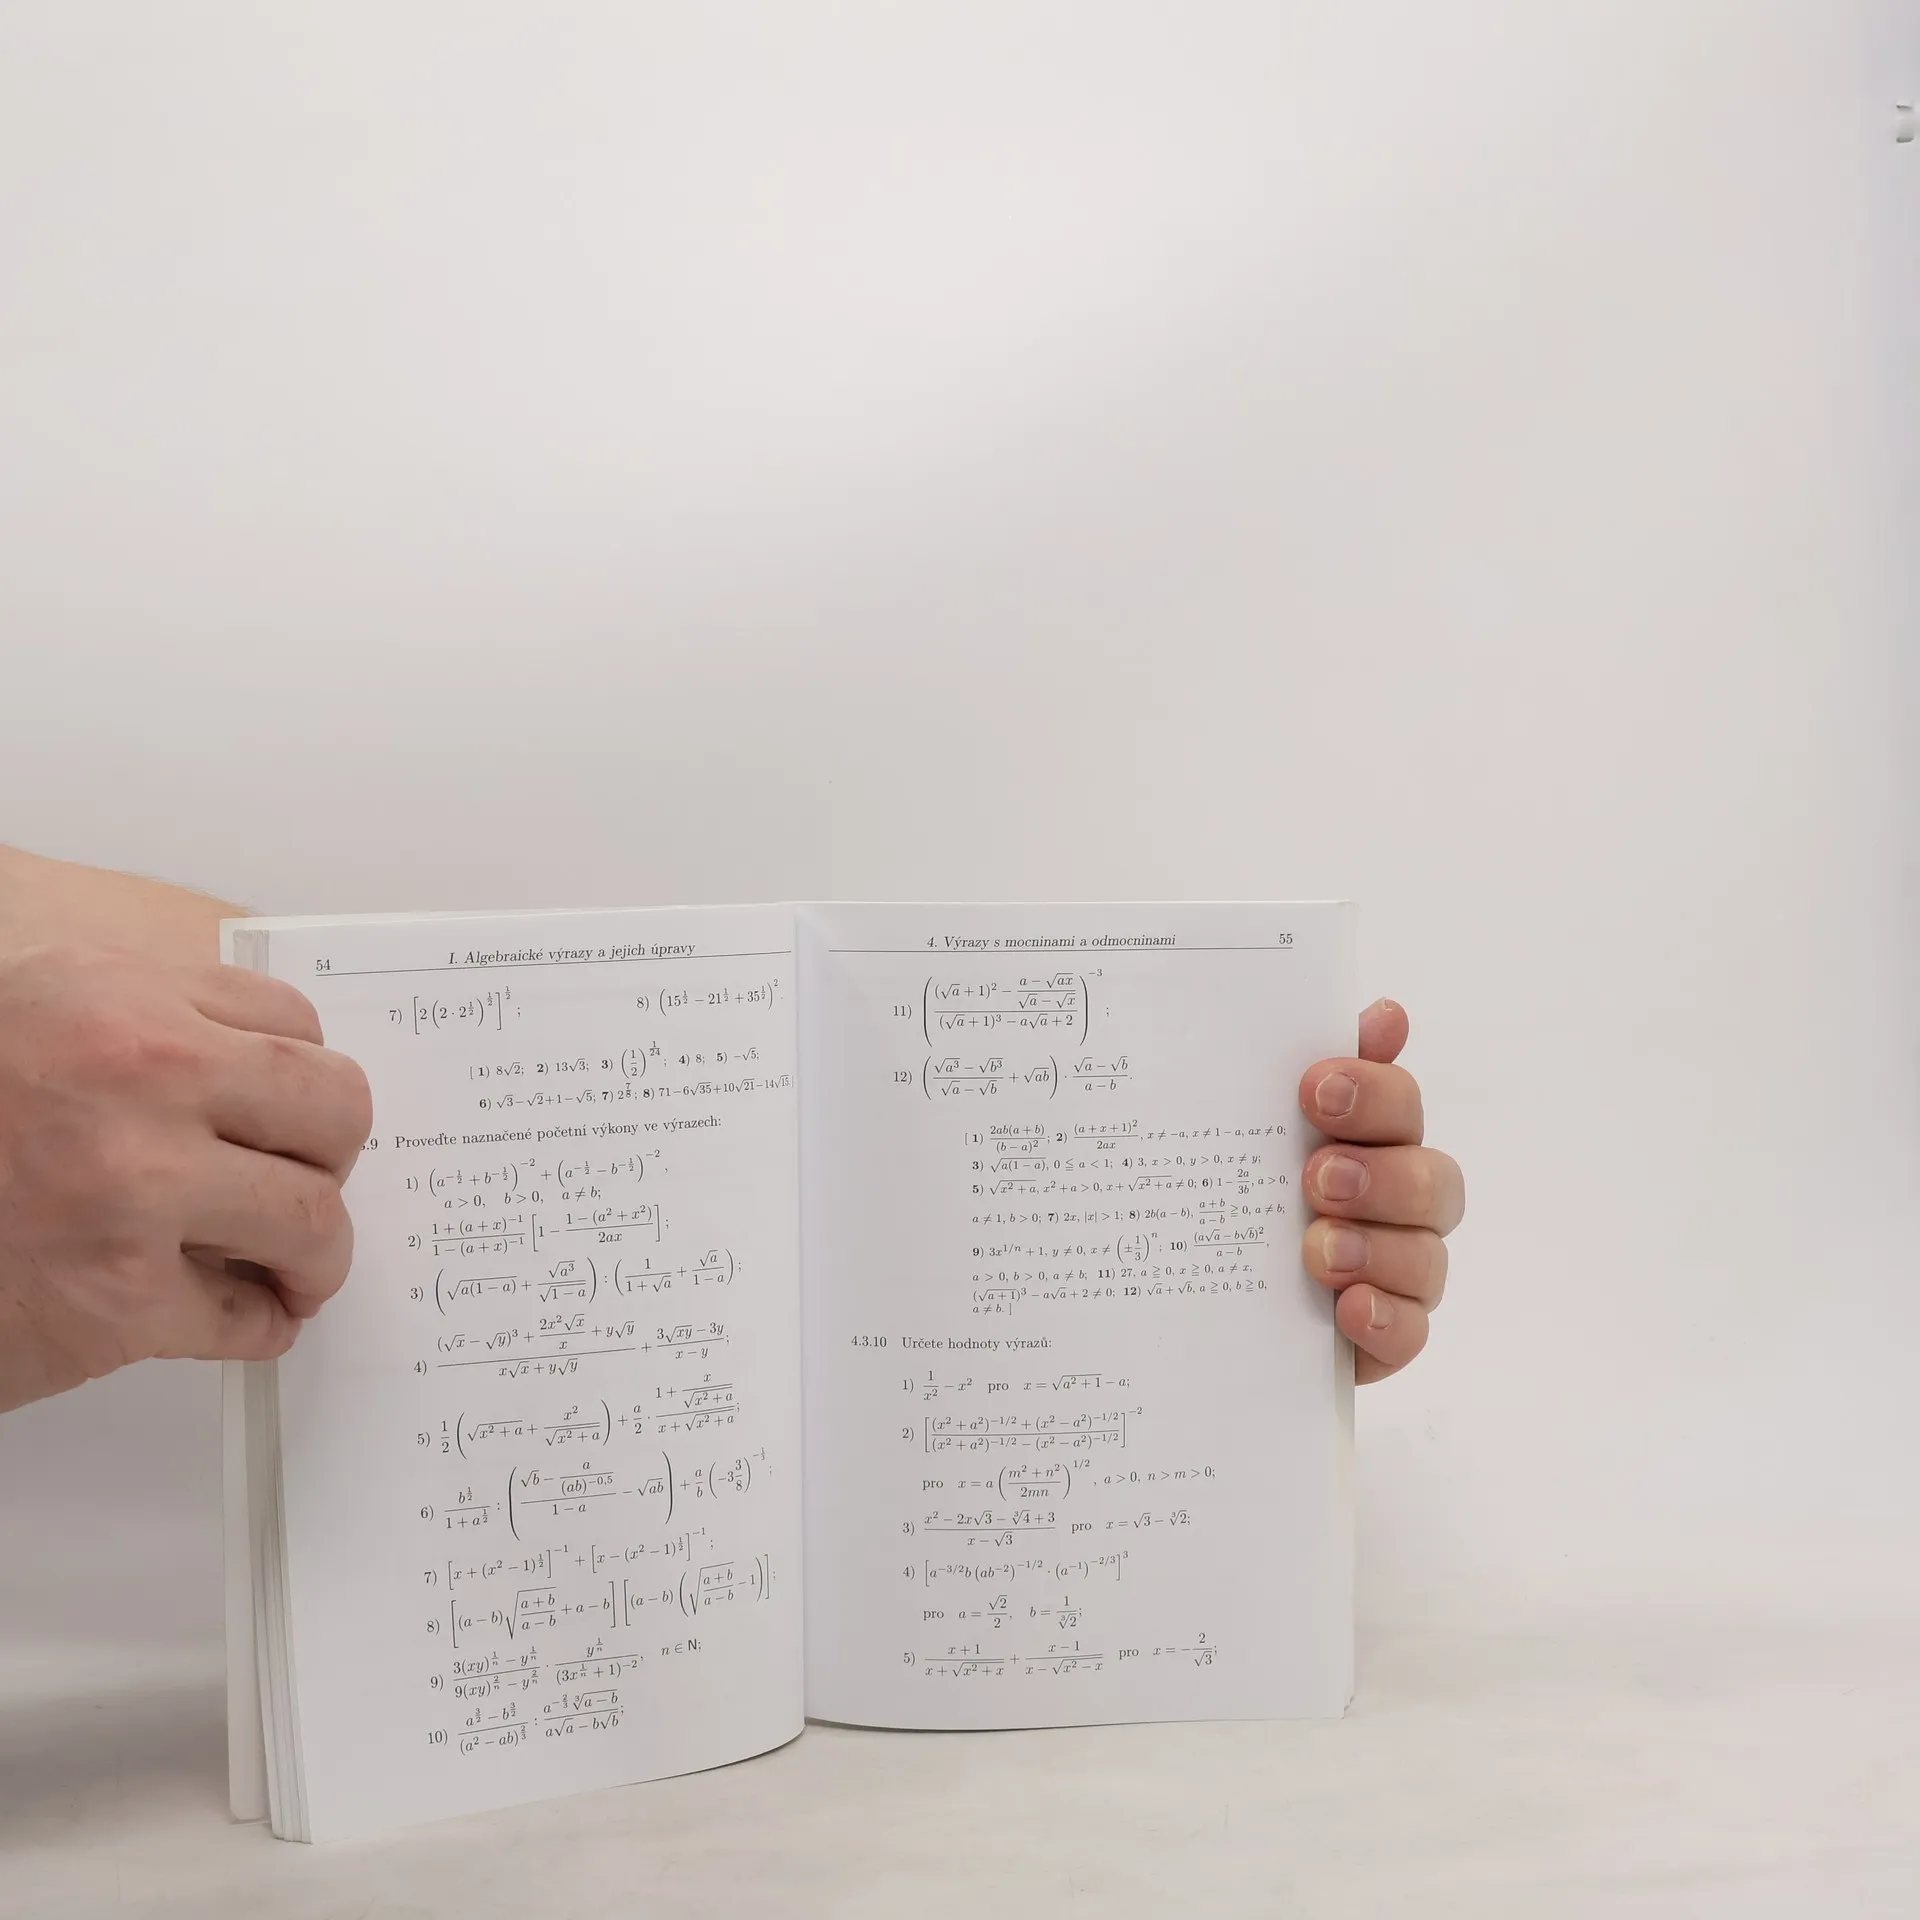 54 I. Algebraické výrazy a jejich úpravy
7) [2(2 · 2^{1/2})^{1/2}]^{1/2}; 8) (15^{1/2} − 21^{1/2} + 35^{1/2})^2.
[ 1) 8√2; 2) 13√3; 3) (1/2)^{1/24}; 4) 8; 5) −√5;
6) √3−√2+1−√5; 7) 2^{7/8}; 8) 71−6√35+10√21−14√15.]
.9 Proveďte naznačené početní výkony ve výrazech:
1) (a^{−1/2} + b^{−1/2})^{−2} + (a^{−1/2} − b^{−1/2})^{−2},
a > 0, b > 0, a ≠ b;
2) (1 + (a + x)^{−1})/(1 − (a + x)^{−1}) [1 − (1 − (a² + x²))/(2ax)];
3) (√(a(1 − a)) + √(a³)/√(1 − a)) : (1/(1 + √a) + √a/(1 − a));
4) ((√x − √y)³ + (2x²√x)/x + y√y)/(x√x + y√y) + (3√(xy) − 3y)/(x − y);
5) 1/2 (√(x² + a) + x²/√(x² + a)) + a/2 · (1 + x/√(x² + a))/(x + √(x² + a));
6) b^{1/2}/(1 + a^{1/2}) : ((√b − a/(ab)^{−0,5})/(1 − a) − √(ab)) + a/b (−3 3/8)^{−1/3};
7) [x + (x² − 1)^{1/2}]^{−1} + [x − (x² − 1)^{1/2}]^{−1};
8) [(a − b)√((a + b)/(a − b)) + a − b] [(a − b)(√((a + b)/(a − b)) − 1)];
9) (3(xy)^{1/n} − y^{1/n})/(9(xy)^{2/n} − y^{2/n}) · y^{1/n}/(3x^{1/n} + 1)^{−2}, n ∈ N;
10) (a^{3/2} − b^{3/2})/(a² − ab)^{2/3} : (a^{−2/3} ∛(a − b))/(a√a − b√b);
4. Výrazy s mocninami a odmocninami 55
11) (((√a + 1)² − (a − √(ax))/(√a − √x))/((√a + 1)³ − a√a + 2))^{−3};
12) ((√(a³) − √(b³))/(√a − √b) + √(ab)) · (√a − √b)/(a − b).
[ 1) 2ab(a + b)/(b − a)²; 2) (a + x + 1)²/(2ax), x ≠ −a, x ≠ 1 − a, ax ≠ 0;
3) √(a(1 − a)), 0 ≦ a < 1; 4) 3, x > 0, y > 0, x ≠ y;
5) √(x² + a), x² + a > 0, x + √(x² + a) ≠ 0; 6) 1 − 2a/3b, a > 0,
a ≠ 1, b > 0; 7) 2x, |x| > 1; 8) 2b(a − b), (a + b)/(a − b) ≧ 0, a ≠ b;
9) 3x^{1/n} + 1, y ≠ 0, x ≠ (±1/3)^n; 10) (a√a − b√b)²/(a − b),
a > 0, b > 0, a ≠ b; 11) 27, a ≧ 0, x ≧ 0, a ≠ x,
(√(a + 1))³ − a√a + 2 ≠ 0; 12) √a + √b, a ≧ 0, b ≧ 0,
a ≠ b. ]
4.3.10 Určete hodnoty výrazů:
1) 1/x² − x² pro x = √(a² + 1) − a;
2) [((x² + a²)^{−1/2} + (x² − a²)^{−1/2})/((x² + a²)^{−1/2} − (x² − a²)^{−1/2})]^{−2}
pro x = a((m² + n²)/(2mn))^{1/2}, a > 0, n > m > 0;
3) (x² − 2x√3 − ∛4 + 3)/(x − √3) pro x = √3 − ∛2;
4) [a^{−3/2}b(ab^{−2})^{−1/2} · (a^{−1})^{−2/3}]³
pro a = √2/2, b = 1/∛2;
5) (x + 1)/(x + √(x² + x)) + (x − 1)/(x − √(x² − x)) pro x = −2/√3;